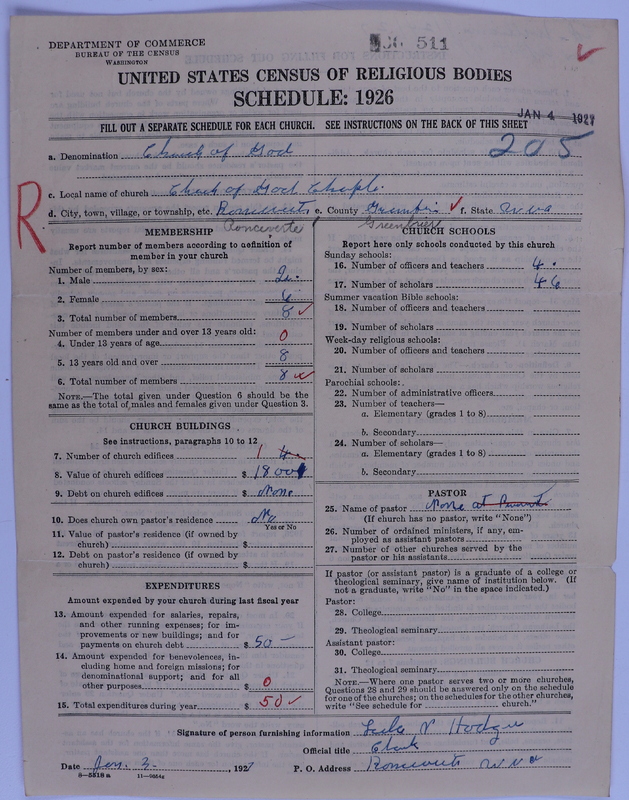 DEPARTMENT OF COMMERCE
BUREAU OF THE CENSUS
WASHINGTON
511
UNITED STATES CENSUS OF RELIGIOUS BODIES
SCHEDULE: 1926
JAN 4 1927
FILL OUT A SEPARATE SCHEDULE FOR EACH CHURCH. SEE INSTRUCTIONS ON THE BACK OF THIS SHEET
205
a. Denomination Church of God
c. Local name of church Church of God Chaple
R
d. City, town, village, or township, etc. Ronceverte e. County Greenbrier f. State W va
Ronceverte Greenbrier
MEMBERSHIP
Report number of members according to definition of
member in your church
Number of members, by sex:
1. Male 2
2. Female 6
3. Total number of members 8
Number of members under and over 13 years old:
4. Under 13 years of age 0
5. 13 years old and over 8
6. Total number of members 8
NOTE.—The total given under Question 6 should be
same as the total of males and females given under Question 3.
CHURCH BUILDINGS
See instructions, paragraphs 10 to 12
7. Number of church edifices 1
8. Value of church edifices $ 1800
9. Debt on church edifices $ None
10. Does church own pastor's residence No
Yes or No
11. Value of pastor's residence (if owned by
church) $
12. Debt on pastor's residence (if owned by
church) $
EXPENDITURES
Amount expended by your church during last fiscal year
13. Amount expended for salaries, repairs,
and other running expenses; for im-
provements or new buildings; and for
payments on church debt $ 50 —
14. Amount expended for benevolences, in-
cluding home and foreign missions; for
denominational support; and for all
other purposes $ 0
15. Total expenditures during year $ 50
CHURCH SCHOOLS
Report here only schools conducted by this church
Sunday schools:
16. Number of officers and teachers 4
17. Number of scholars 46
Summer vacation Bible schools:
18. Number of officers and teachers
19. Number of scholars
Week-day religious schools:
20. Number of officers and teachers
21. Number of scholars
Parochial schools:
22. Number of administrative officers
23. Number of teachers—
a. Elementary (grades 1 to 8)
b. Secondary
24. Number of scholars—
a. Elementary (grades 1 to 8)
b. Secondary
PASTOR
25. Name of pastor None at
(If church has no pastor, write "None")
26. Number of ordained ministers, if any, em-
ployed as assistant pastors
27. Number of other churches served by the
pastor or his assistants
If pastor (or assistant pastor) is a graduate of a college or
theological seminary, give name of institution below. (If
not a graduate, write "No" in the space indicated.)
Pastor:
28. College
29. Theological seminary
Assistant pastor:
30. College
31. Theological seminary
NOTE.—Where one pastor serves two or more churches,
Questions 28 and 29 should be answered only on the schedule
for one of the churches; on the schedules for the other churches,
write "See schedule for church."
Signature of person furnishing information
Official title Clerk
Date Jan. 3, 1927 P. O. Address Ronceverte W va
8—5518 a 11—9554c